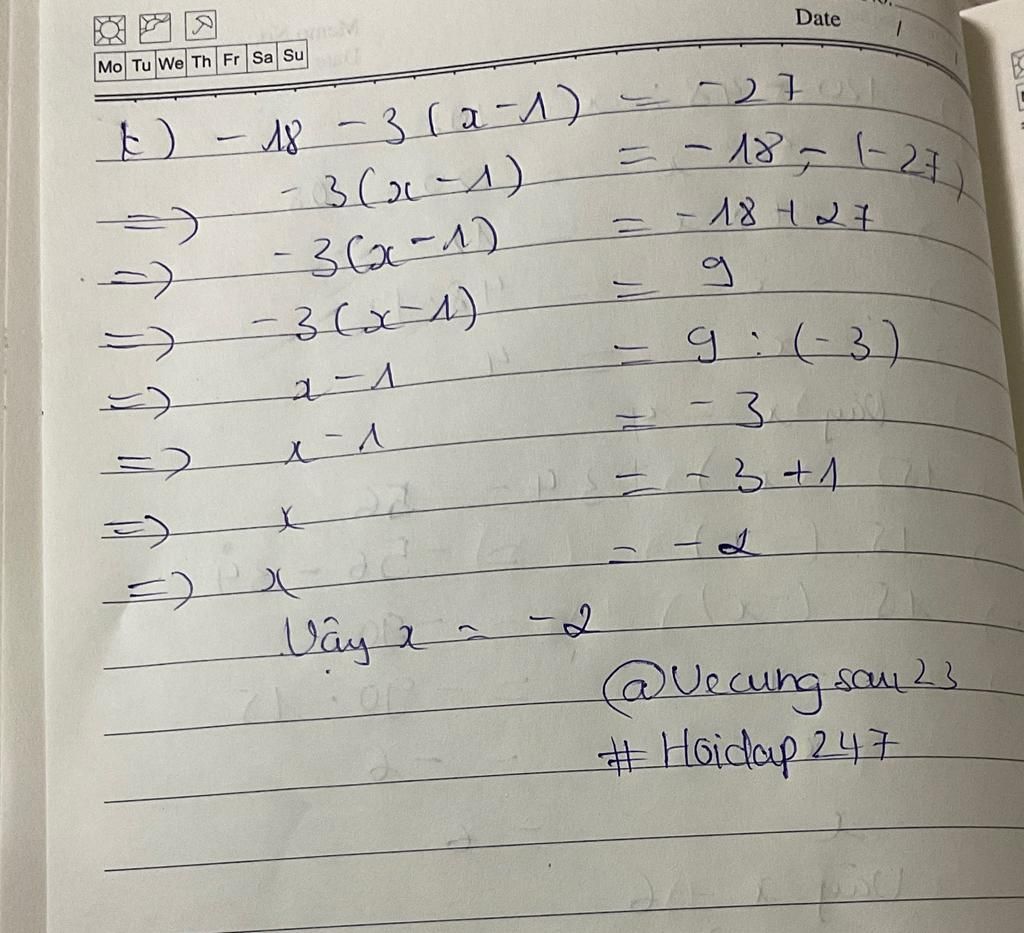 Date
Mo Tu We Th Fr Sa Su
k) - 18 - 3 (x - 1) = - 27
=> - 3 (x - 1) = - 18 - (- 27)
=> - 3 (x - 1) = - 18 + 27
=> - 3 (x - 1) = 9
=> x - 1 = 9 : (- 3)
=> x - 1 = - 3
=> x = - 3 + 1
=> x = - 2
Vậy x = - 2
@Vecungsau23
# Hoidap247